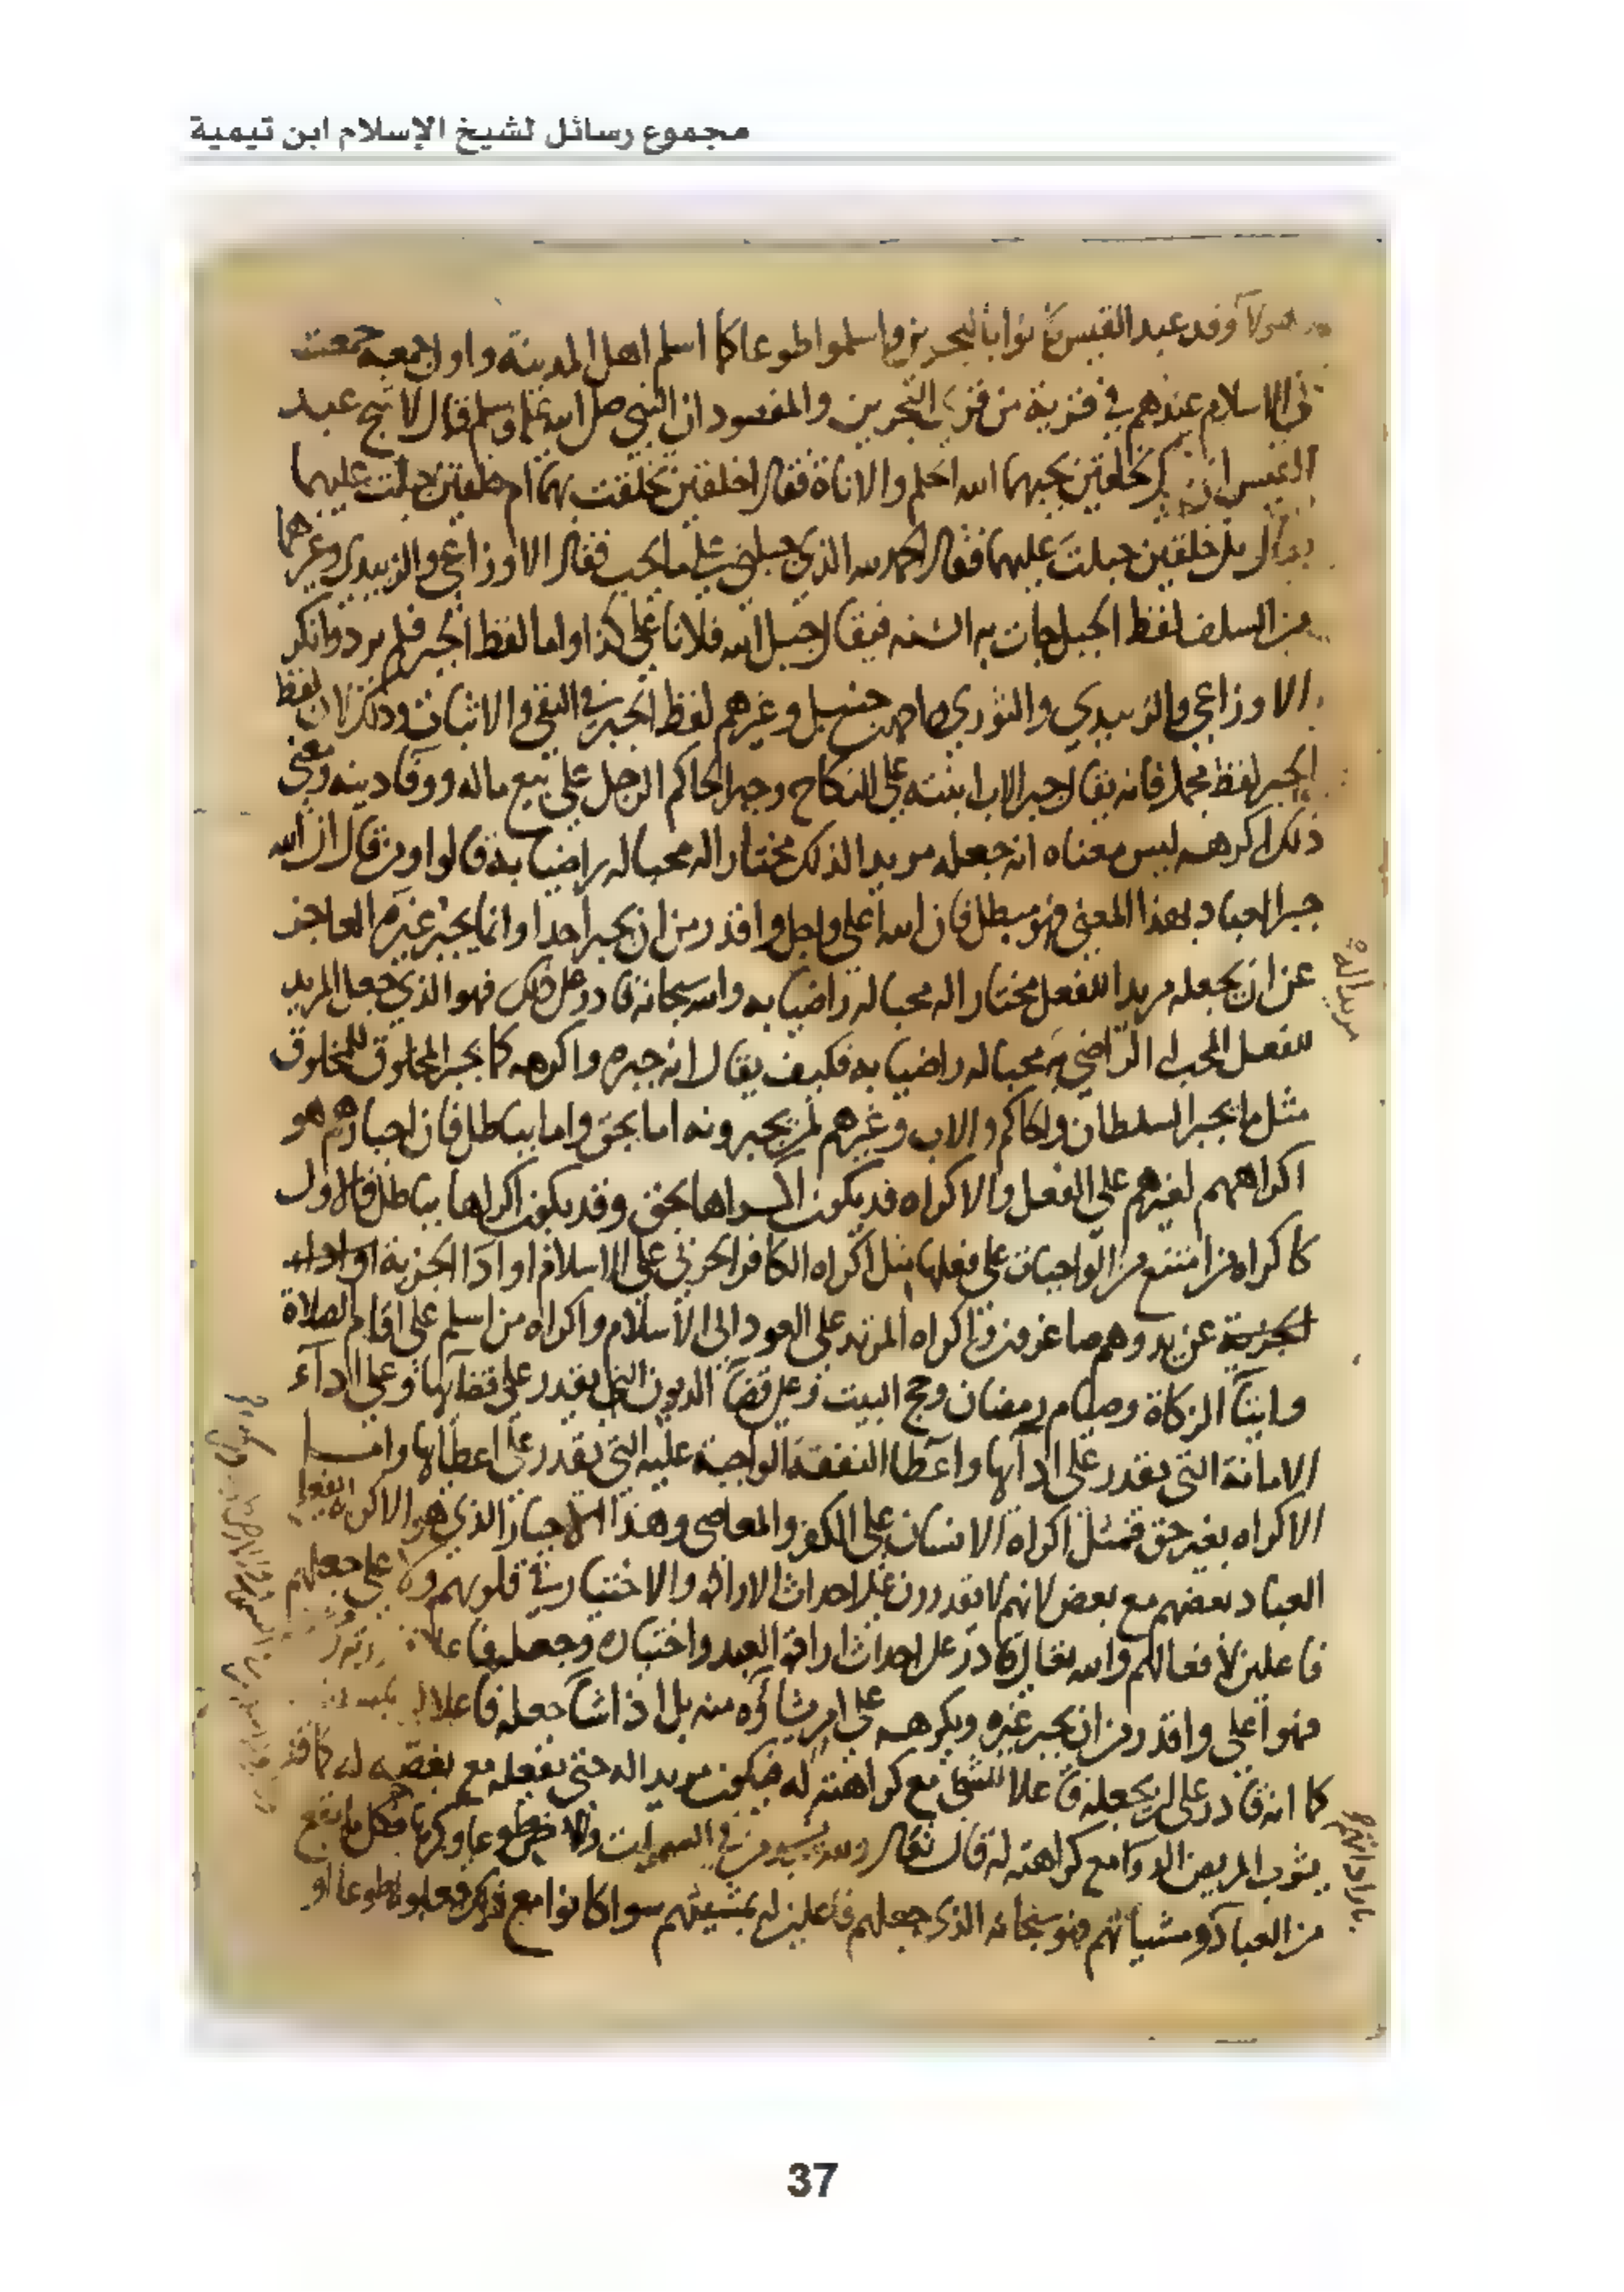 مجموع رسائل لشيخ الإسلام ابن تيمية
وفد عبد القيس كانوا بالبحرين واسلموا طوعا كما اسلم اهل المدينة واول جمعه جمعت
في الاسلام عندهم في قرية من قرى البحرين والمقصود ان النبي صلى الله عليه وسلم قال لاشج عبد
القيس ان فيك لخلقين يحبهما الله الحلم والاناة فقال اخلقين تخلقت بهما ام خلقين جبلت عليهما
فقال بل خلقين جبلت عليهما فقال الحمد لله الذي جبلني على ما يحب فقال الاوزاعي والزبيدي وغيرهما
من السلف لفظ الجبل جات به السنه فيقال جبل الله فلانا على كذا واما لفظ الجبر فلم يرد وانكر
الاوزاعي والزبيدي والثوري واحمد بن حنبل وغيرهم لفظ الجبر في النفي والاثبات وذلك لان لفظ
الجبر لفظ مجمل فانه يقال جبر الاب ابنته على النكاح وجبر الحاكم الرجل على بيع ماله ووفا دينه ومعنى
ذلك اكرهه ليس معناه انه جعله مريدا لذلك مختارا له محبا له راضيا به قالوا ومن قال ان الله
جبر العباد بهذا المعنى فهو مبطل فان الله اعلى واجل واقدر من ان يجبر احدا وانما يجبر غيره العاجز
عن ان يجعله مريدا للفعل مختارا له محبا له راضيا به والله سبحانه قادر على ذلك فهو الذي جعل المريد
للفعل المحب له الراضي به محبا له راضيا به فكيف يقال انه جبره واكرهه كما يجبر المخلوق للمخلوق
مثل ما يجبر السلطان والحاكم والاب وغيرهم لمن يجبرونه اما بحق واما بباطل فان اجبارهم هو
اكراههم لغيرهم على الفعل والاكراه قد يكون اكراها بحق وقد يكون اكراها بباطل فالاول
كاكراه من امتنع من الواجبات على فعلها مثل اكراه الكافر الحربي على الاسلام او ادا الجزية او اداء
الجزية عن يد وهم صاغرون واكراه المرتد على العود الى الاسلام واكراه من اسلم على اقام الصلاة
وايتآ الزكاة وصيام رمضان وحج البيت وعلى قضآ الديون التي يقدر على قضآئها وعلى ادآء
الامانة التي يقدر على ادآئها واعطا النفقة الواجبة عليه التي يقدر على اعطآئها واما
الاكراه بغير حق فمثل اكراه الانسان على الكفر والمعاصي وهذا الاجبار الذي هو الاكراه يفعله
العباد بعضهم مع بعض لانهم لا يقدرون على احداث الارادة والاختيار في قلوبهم ولا على جعلهم
فاعلين لافعالهم والله تعالى قادر على احداث ارادة العبد واختياره وجعله فاعلا
فهو اعلى واقدر من ان يجبر غيره ويكرهه على امر شآءه منه بل اذا شآ جعله فاعلا له
كما انه قادر على ان يجعله فاعلا للشي مع كراهته له فيكون مريدا له حتى يفعله مع بغضه له كما قد
يشرب المريض الدوا مع كراهته له قال تعالى ولله يسجد من في السموات والارض طوعا وكرها فكل ما يقع
من العباد ومشيأتهم فهو سبحانه الذي جعلهم فاعلين له بمشيئتهم سوا كانوا مع ذلك فعلوه طوعا او
مريدا له
37